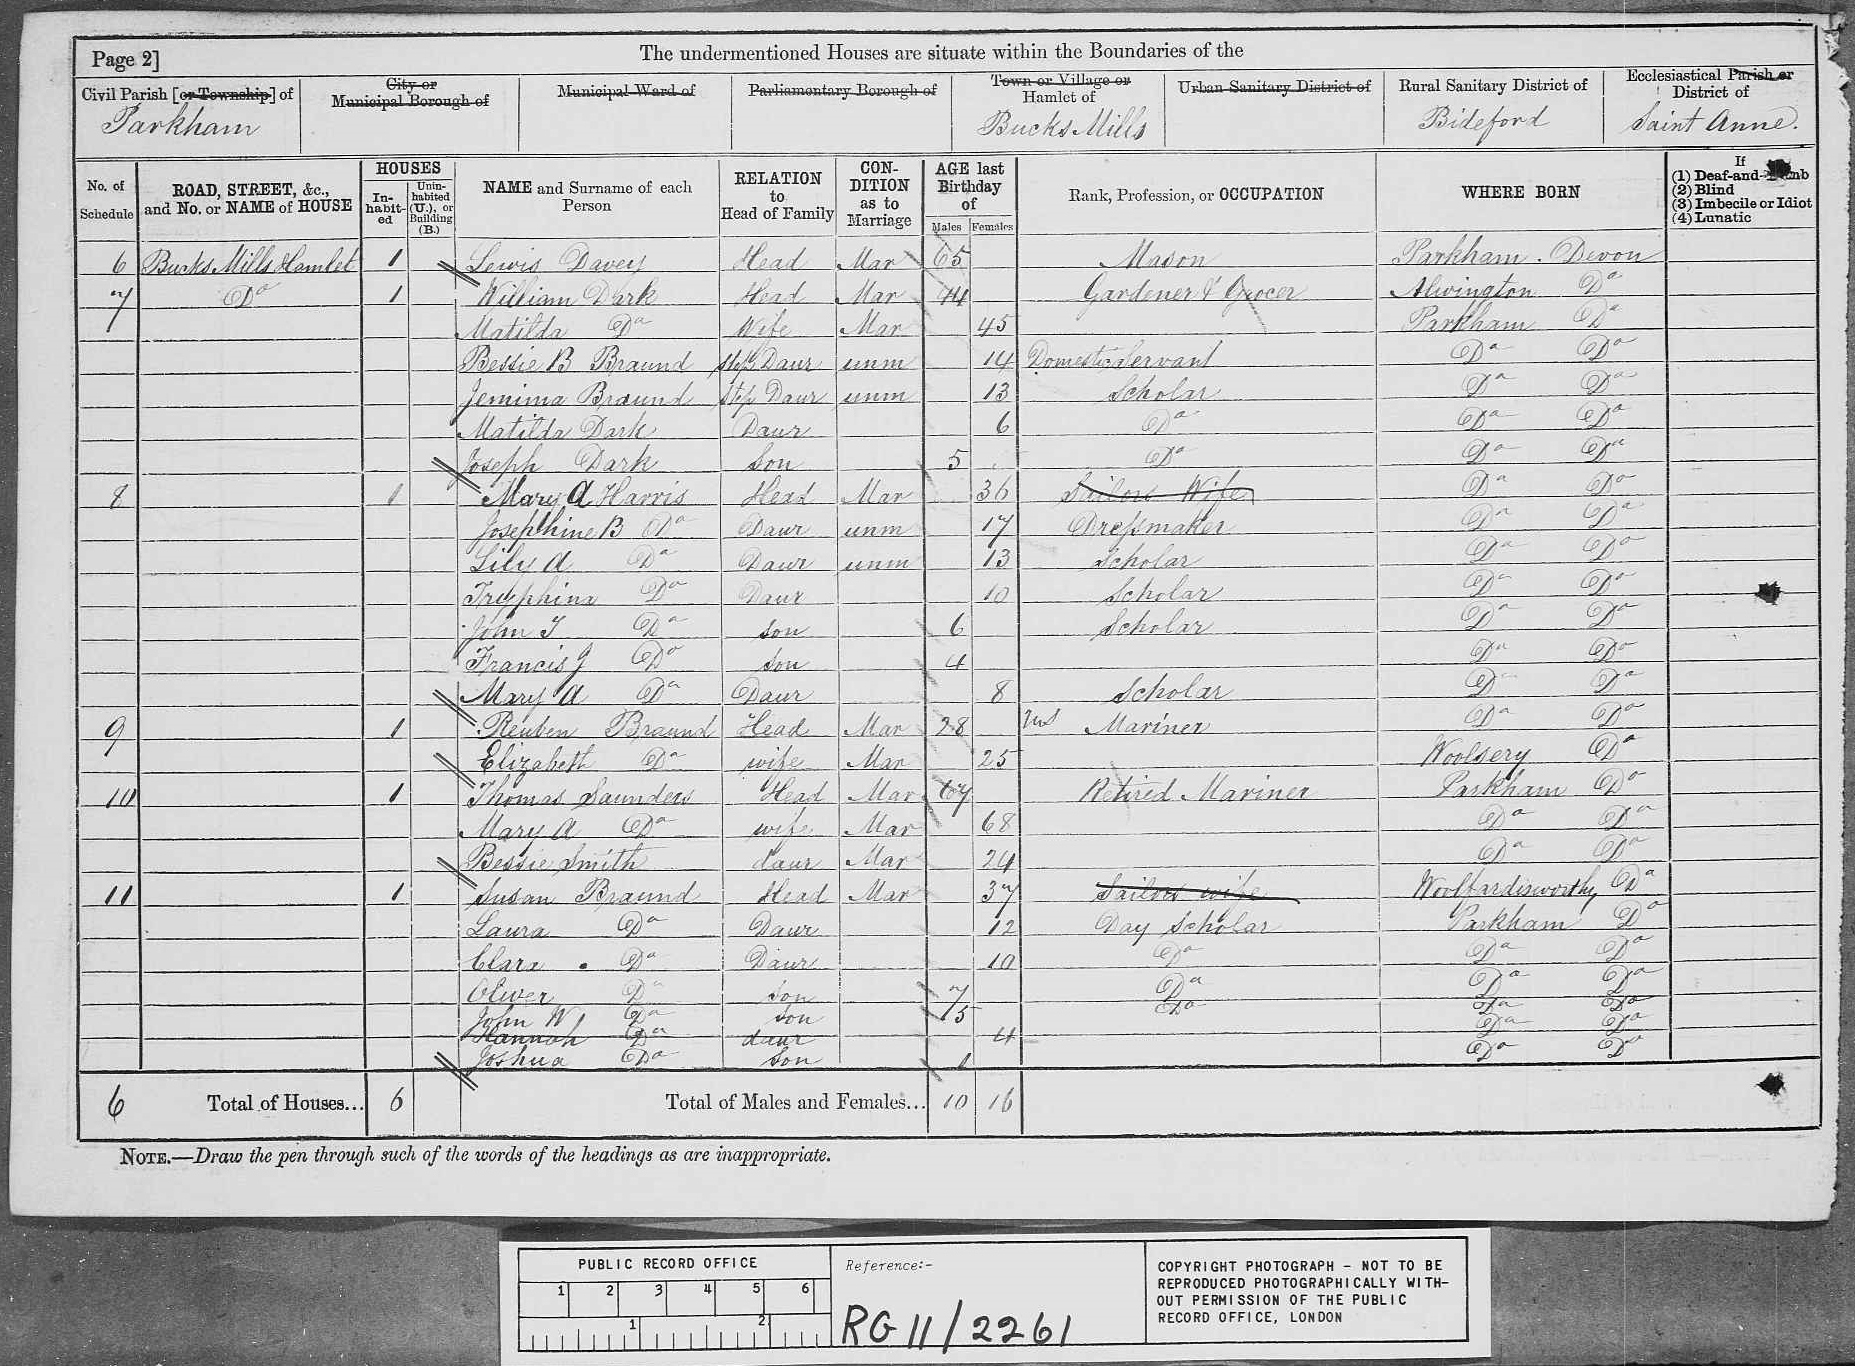 Page 2] The undermentioned Houses are situate within the Boundaries of the
Civil Parish [or Township] of
City or Municipal Borough of
Municipal Ward of
Parliamentary Borough of
Town or Village or Hamlet of
Urban Sanitary District of
Rural Sanitary District of
Ecclesiastical Parish or District of
Parkham Bucks Mills Bideford Saint Anne.
No. of Schedule
ROAD, STREET, &c., and No. or NAME of HOUSE
HOUSES
In-habit-ed
Unin-habited (U.), or Building (B.)
NAME and Surname of each Person
RELATION to Head of Family
CON-DITION as to Marriage
AGE last Birthday of
Males Females
Rank, Profession, or OCCUPATION
WHERE BORN
If
(1) Deaf-and-Dumb
(2) Blind
(3) Imbecile or Idiot
(4) Lunatic
6 Bucks Mills Hamlet 1 Lewis Davey Head Mar 65 Mason Parkham . Devon
7 Do 1 William Dark Head Mar 44 Gardener & Grocer Alwington Do
Matilda Do Wife Mar 45 Parkham Do
Bessie B Braund Step Daur unm 14 Domestic Servant Do Do
Jemima Braund Step Daur unm 13 Scholar Do Do
Matilda Dark Daur 6 Do Do Do
Joseph Dark Son 5 Do Do Do
8 1 Mary A Harris Head Mar 36 Sailors Wife Do Do
Josephine B Do Daur unm 17 Dressmaker Do Do
Lily A Do Daur unm 13 Scholar Do Do
Tryphina Do Daur 10 Scholar Do Do
John T Do son 6 Scholar Do Do
Francis J Do son 4 Do Do
Mary A Do Daur 8 Scholar Do Do
9 1 Reuben Braund Head Mar 28 Mariner Do Do
Elizabeth Do wife Mar 25 Woolsery Do
10 1 Thomas Saunders Head Mar 67 Retired Mariner Parkham Do
Mary A Do wife Mar 68 Do Do
Bessie Smith daur Mar 24 Do Do
11 1 Susan Braund Head Mar 37 Sailors wife Woolfardisworthy Do
Laura Do Daur 12 Day Scholar Parkham Do
Clara Do Daur 10 Do Do Do
Oliver Do son 7 Do Do Do
John W Do son 5 Do Do Do
Hannah Do daur 4 Do Do
Joshua Do Son 1 Do Do
6 Total of Houses... 6 Total of Males and Females... 10 16
NOTE.—Draw the pen through such of the words of the headings as are inappropriate.
PUBLIC RECORD OFFICE
1 2 3 4 5 6
1 2
Reference:-
RG 11/2261
COPYRIGHT PHOTOGRAPH - NOT TO BE
REPRODUCED PHOTOGRAPHICALLY WITH-
OUT PERMISSION OF THE PUBLIC
RECORD OFFICE, LONDON